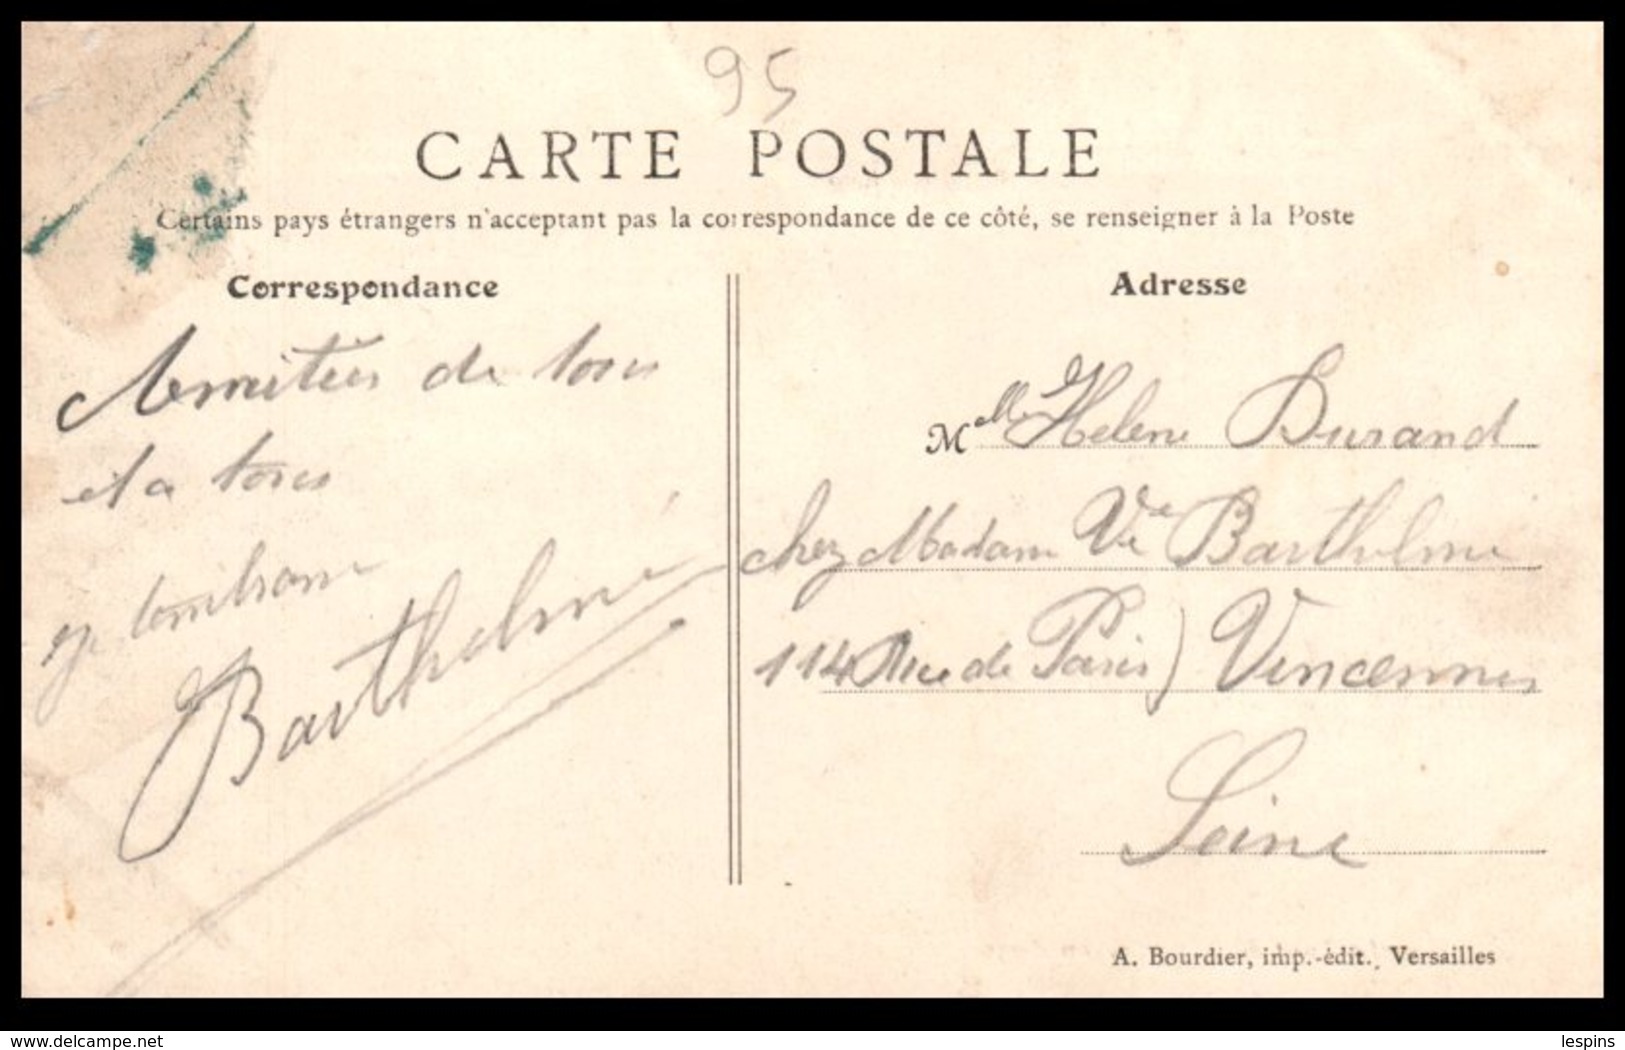 95
CARTE POSTALE
Certains pays étrangers n'acceptant pas la correspondance de ce côté, se renseigner à la Poste
Correspondance
Adresse
Amitiés de tous
et a tous
Barthelmé
Melle Helene Durand
chez Madame Ve Barthelmé
114 Rue de Paris) Vincennes
Seine
A. Bourdier, imp.-édit., Versailles
delcampe.net
lespins